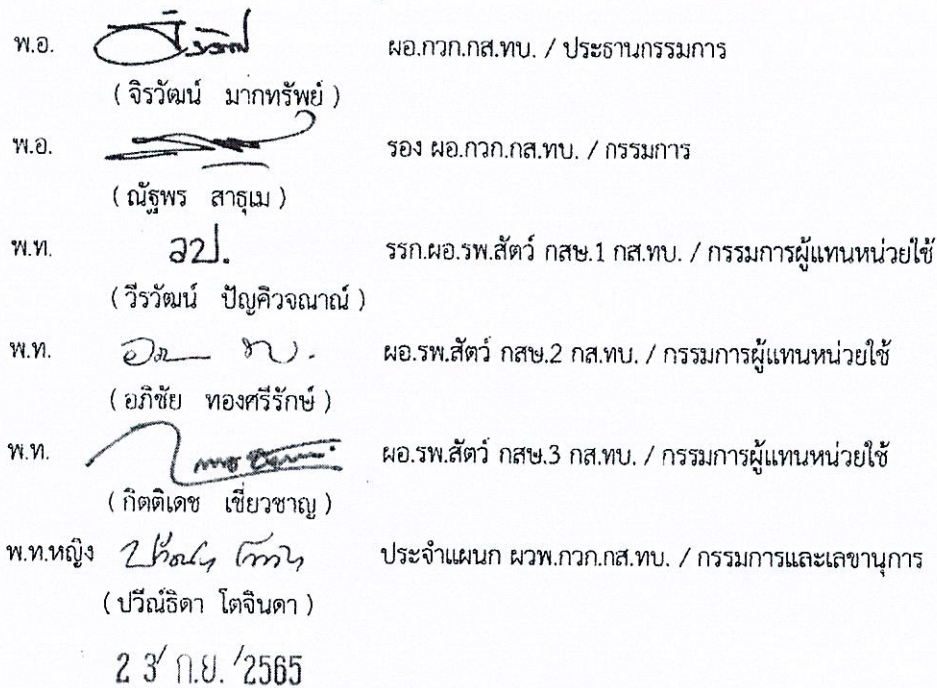 พ.อ. ผอ.กวก.กส.ทบ. / ประธานกรรมการ
( จิรวัฒน์ มากทรัพย์ )
พ.อ. รอง ผอ.กวก.กส.ทบ. / กรรมการ
( ณัฐพร สาธุเม )
พ.ท. รรก.ผอ.รพ.สัตว์ กสษ.1 กส.ทบ. / กรรมการผู้แทนหน่วยใช้
( วีรวัฒน์ ปัญคิวจณาณ์ )
พ.ท. ผอ.รพ.สัตว์ กสษ.2 กส.ทบ. / กรรมการผู้แทนหน่วยใช้
( อภิชัย ทองศรีรักษ์ )
พ.ท. ผอ.รพ.สัตว์ กสษ.3 กส.ทบ. / กรรมการผู้แทนหน่วยใช้
( กิตติเดช เชี่ยวชาญ )
พ.ท.หญิง ประจำแผนก ผวพ.กวก.กส.ทบ. / กรรมการและเลขานุการ
( ปวีณ์ธิดา โตจินดา )
2 3/ ก.ย. /2565